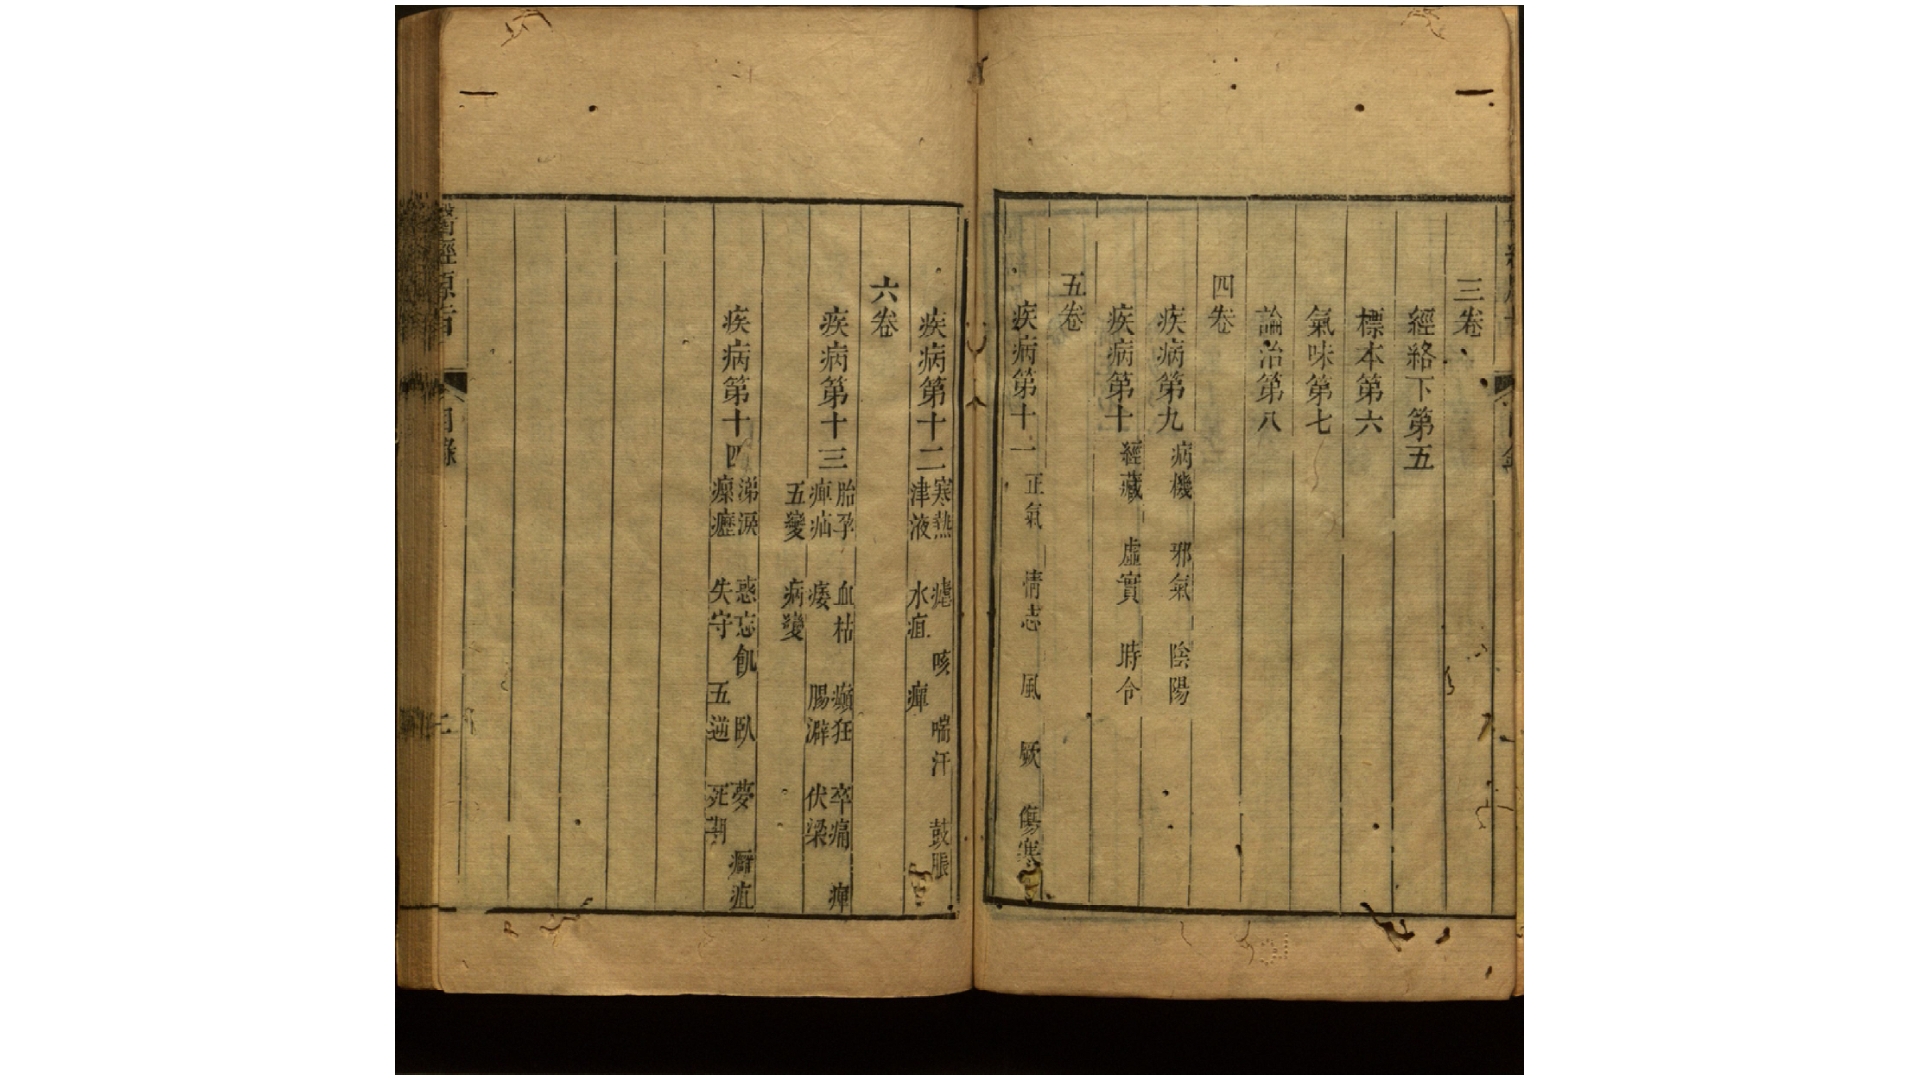 三卷
經絡下第五
標本第六
氣味第七
論治第八
四卷
疾病第九 病機 邪氣 陰陽
疾病第十 經藏 虛實 時令
五卷
疾病第十一 正氣 情志 風 厥 傷寒
疾病第十二 寒熱 瘧 咳 喘汗 鼓脹
津液 水疸 痺
六卷
疾病第十三 胎孕 血枯 癲狂 卒痛 癉
痺疝 痿 腸澼 伏梁
五變 病變
疾病第十四 涕淚 惑忘 飢 臥 夢 癰疽
瘰癧 失守 五逆 死期
醫經原旨
目錄